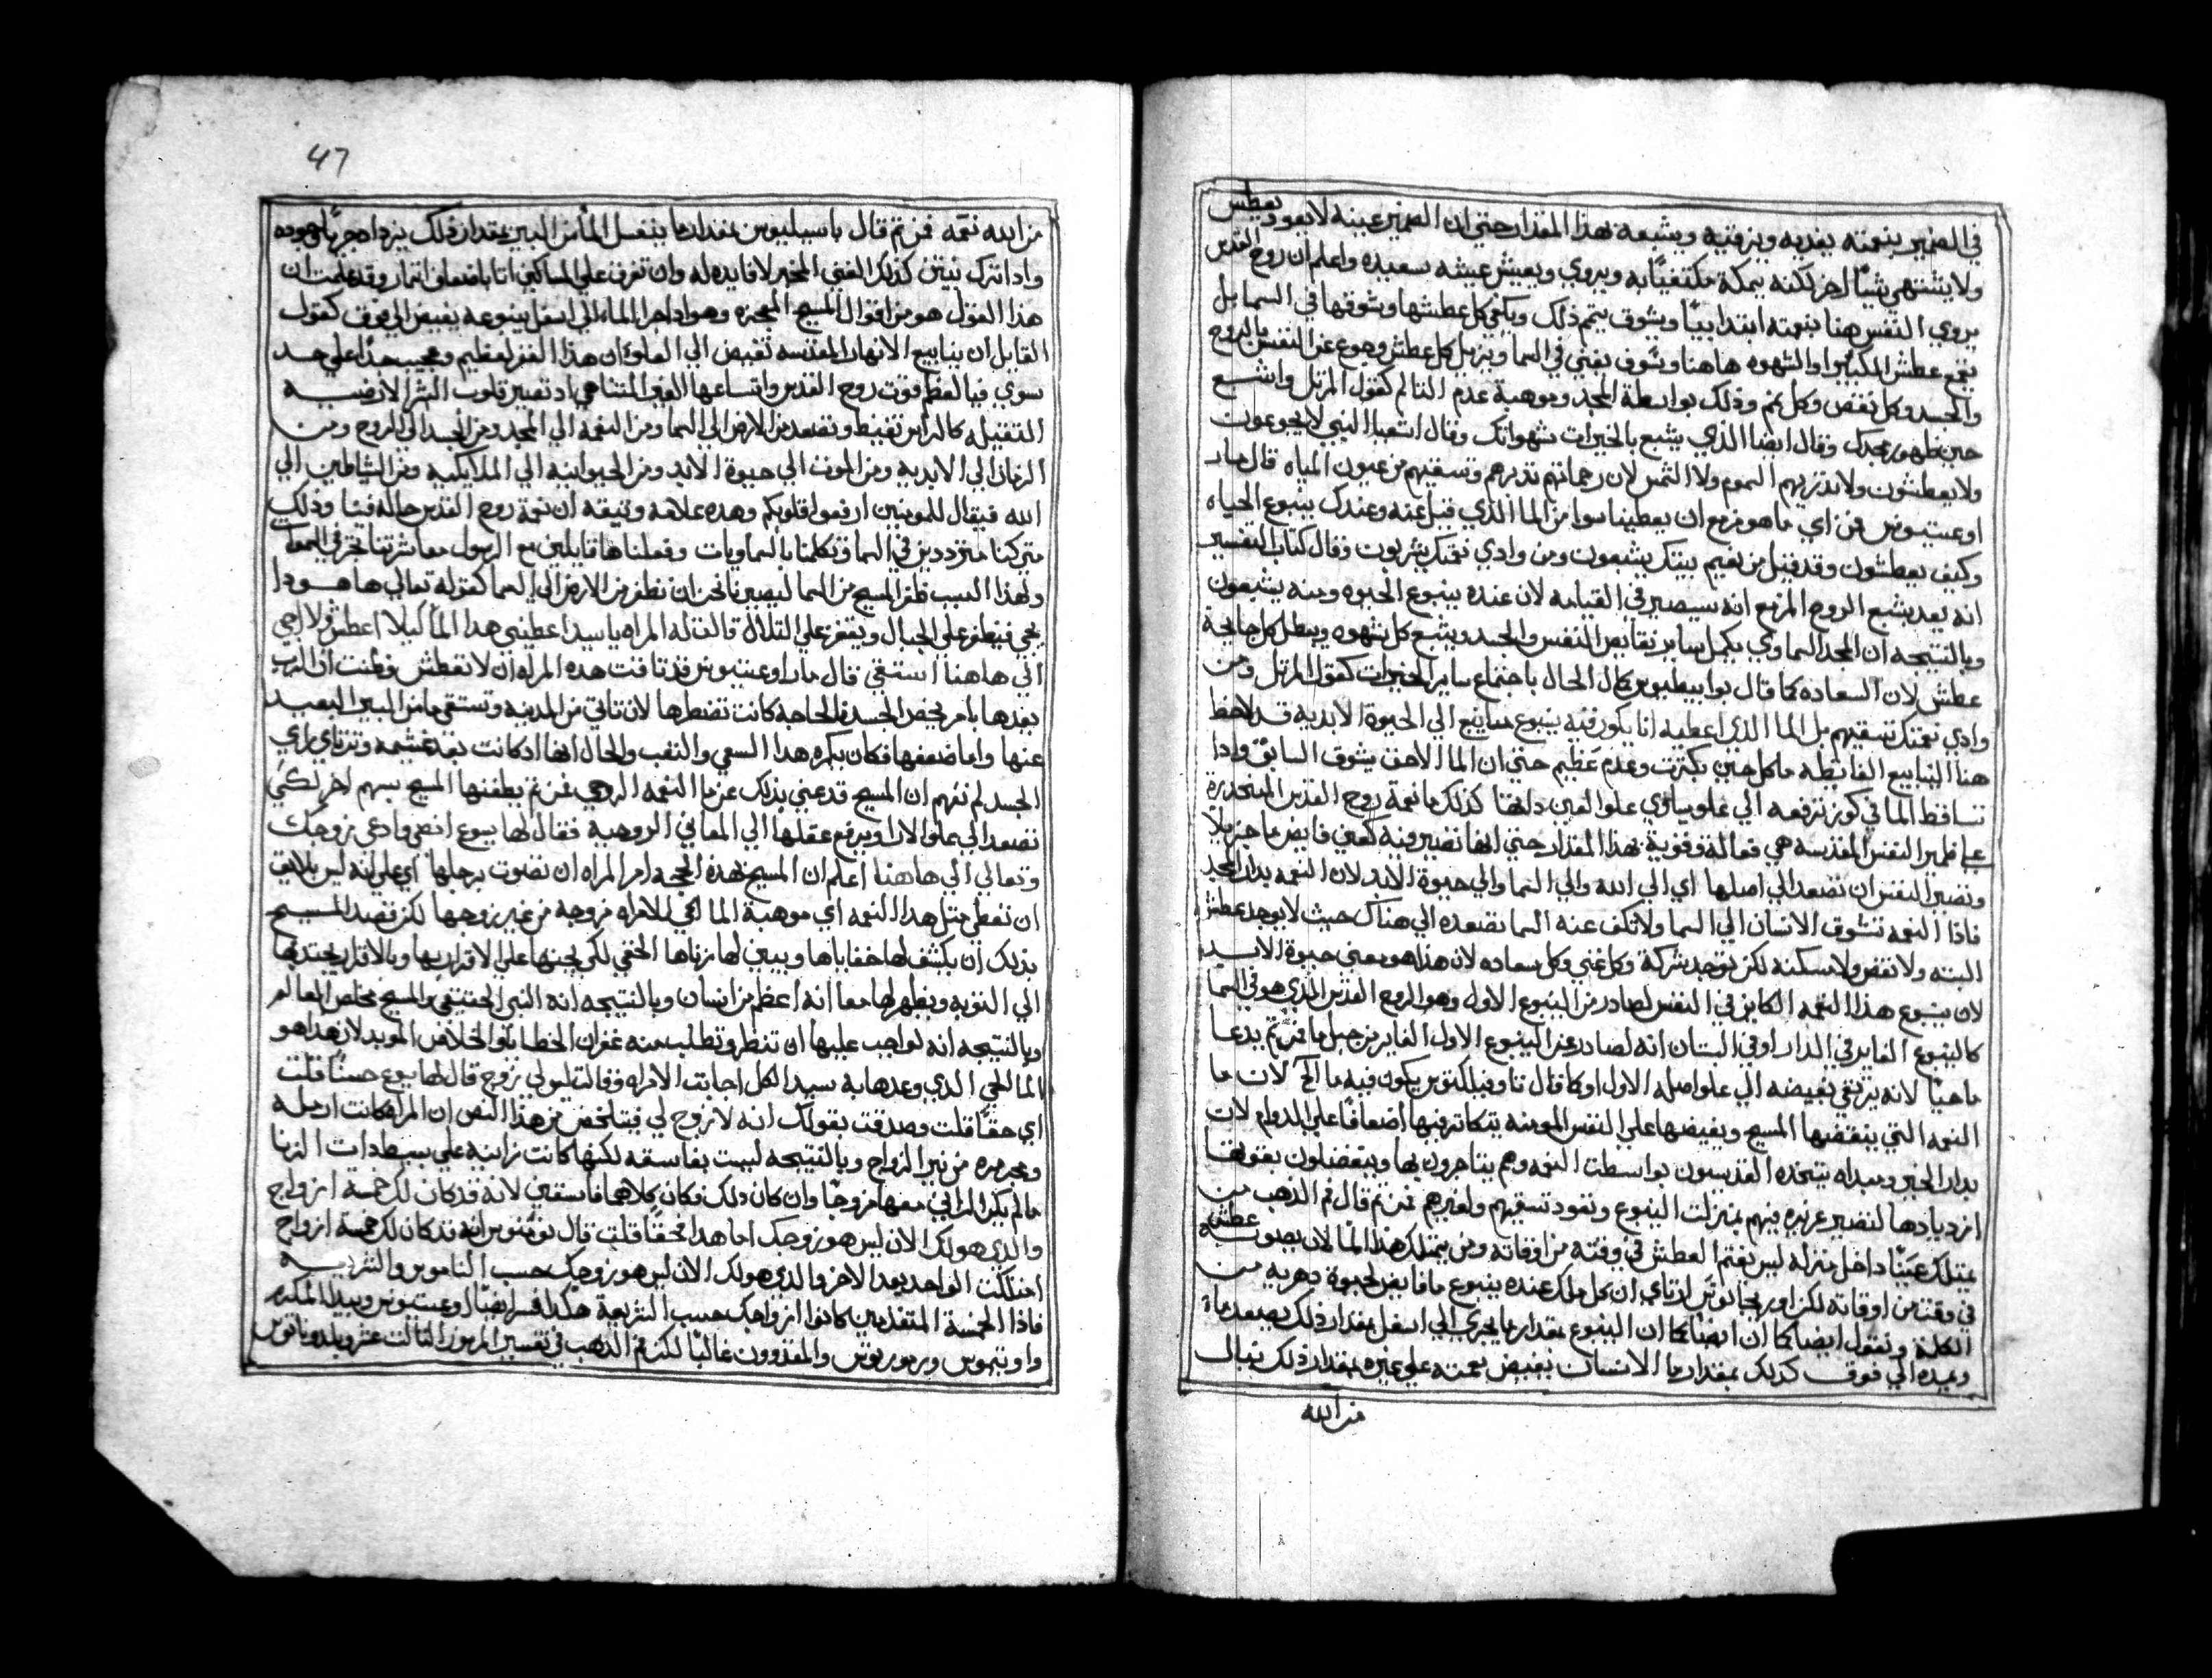 في الضمير بنعمته يغذيه ويرقيه ويشبعه بهذا المقدار حتي ان الضمير عينه لا يعود يعطش
ولا يشتهي شيا اخر لكنه يمكنه مكتفيا به ويروي ويعيش عيشه سعيده واعلم ان روح القدس
يروي النفس هنا بنعمته ابتدا وسوف يتمم ذلك ويكفي كل عطشها وشوقها في السما بل
يقمع عطش او الشهوه هاهنا وسوف يفني في السما ويزيل كل عطش وجوع عن النفس بالروح
والجسد وكل نقص وكل غم وذلك بواسطة المجد وموهبة عدم التالم كقول المرتل واشبع
حين ظهور مجدك وقال ايضا الذي يشبع بالخيرات شهواتك وقال اشعيا النبي لا يجوعون
ولا يعطشون ولا تذريهم السموم ولا الشمس لان رحماتهم تدبرهم وتسقيهم من عيون المياه قال مار
اوغستينوس فمن اي ما هو مزمع ان يعطينا سوا من الما الذي قيل عنه وعندك ينبوع الحياه
وكيف يعطشون وقد قيل من نعيم بيتك يشبعون ومن وادي نعمتك يشربون وقال كتاب التفسير
انه يعد بشبع الروح المزمع انه سيصير في القيامه لان عنده ينبوع الحيوه ومنه يشبعون
وبالنتيجه ان المجد السماوي يكمل ساير نقايص النفس والجسد ويشبع كل شهوه ويبطل كل جايحة
عطش لان السعاده كما قال بوابيطيوس كمال الحال باجتماع ساير الخيرات كقول المرتل ومن
وادي نعمتك تسقيهم بل الما الذي اعطيه انا يكون فيه ينبوع ما ينبع الي الحيوة الابديه قد لاحظ
هنا الينابيع الفايضه ما كل حين بكثرت وعدم عظيم حتي ان الما اللاحق يشوق السابق واذا
تساقط الما في كوز ترفعه الي علو يساوي علو العين دافقا كذلك ما نعمة روح القدس المنحدرة
علي ضمير النفس المقدسه هي فعاله وقوية بهذا المقدار حتي انها تصير فيه كعين فايض ما جزيلا
وتصير النفس ان تصعد الي اصلها اي الي الله والي السما والي حيوة الابد لان النعمه بدار المجد
فاذا النعمه تشوق الانسان الي السما ولا تكف عنه السما تصعده الي هناك حيث لا يوجد عطش
البته ولا نقص ولا مسكنه لكن توجد شركة وكل غني وكل سعاده لان هذا هو معني حيوة الابد
لان ينبوع هذا النعمه الكاين في النفس لصادر من الينبوع الاول وهو الروح القدس الذي هو في السما
كالينبوع الفاير في الدار او في البستان انه لصادر عن الينبوع الاول الفاير من جبل ما فمن ثم يدعا
ما حيا لانه يرتقي بفيضه الي علو اصله الاول او كما قال تاوفيلكتوس يكون فيه ما الخ لان ما
النعمه التي ينقضها المسيح ويفيضها علي النفس المومنه يتكاثر فيها اضعافا علي الدوام لان
بدار الخير ومبداه يتخذه القديسون بواسطت النعمه وهم يتاجرون بها ويتفضلون بقوتها
ازديادها لتصير غزيره فيهم بمنزلت الينبوع وتعود تسقيهم ولغيرهم فمن ثم قال فم الذهب من
يمتلك عينا داخل منزله ليس يغتم العطش في وقته من اوقاته ومن يمتلك هذا الما لان يصونه عطش
في وقت من اوقاته لكن اوريجانوس ارتاي ان كل ملك عنده ينبوع ما فايض لحيوة وهربه من
الكلمة ونقول ايضا كما ان ايضا كما ان الينبوع بمقدار ما يجري الي اسفل بمقدار ذلك يصعد ماه
ومبده الي فوق كذلك بمقدار ما الانسان يفيض بنعمته علي غيره بمقدار ذلك ينال
من الله
47
من الله نعمه فمن ثم قال باسيليوس بمقدار ما ينغسل الما من البير بمقدار ذلك يزداد جريا لجوده
واذا ترك نتن كذلك الغني المخبر لا فايده له وان تفرق علي المساكين اتا باضعاف اثمار وقد علمت ان
هذا القول هو من اقوال المسيح المعجزه وهو اذا جرا الما الي اسفل ينبوعه يفيض الي فوق كقول
القايل ان ينابيع الانهار المقدسه تفيض الي العلو ان هذا القفز لعظيم وعجيب جدا علي حد
سوي فيا لعظم قوت روح القدس واتساعها الغير المتناهي اذ تصير قلوب البشر الارضيه
الثقيله كالرابن تقنبط وتصعد من الارض الي السما ومن النعمه الي المجد ومن الجسد الي الروح ومن
الزمان الي الابديه ومن الموت الي حيوة الابد ومن الحيوانيه الي الملايكيه ومن الشياطين الي
الله فيقال للمومنين ارفعوا قلوبكم وهذه علامه وثيقه ان نعمة روح القدس حاله فينا وذلك
متي كنا مترددين في السما وتكلمنا بالسماويات وفعلناها قايلين مع الرسول معاشرتنا نحن في السموات
ولهذا السبب طفر المسيح من السما ليصيرنا نحن ان نطفر من الارض الي السما كقوله تعالي ها هوذا
يجي فيطفر علي الجبال ويقفز علي التلال قالت له المراه يا سيد اعطيني هذا الما كيلا اعطش ولا اجي
الي هاهنا استقي قال مار اوغستينوس قد تاقت هذه المراه ان لا تعطش وظنت ان الرب
يعدها بامر يخص الجسد فالحاجه كانت تضطرها لان تاتي من المدينه وتستقي ما من البير البعيد
عنها واما ضعفها فكان يكره هذا السعي والتعب والحال انها اذ كانت بعد غشيمه وترتاي براي
الجسد لم تفهم ان المسيح قد عني بذلك عن ما النعمه الروحي فمن ثم يطعنها المسيح بسهم اخر لكي
تصعد الي علو الاراء ويرفع عقلها الي المعاني الروحيه فقال لها يسوع امضي وادعي زوجك
وتعالي الي هاهنا اعلم ان المسيح بهذه الحجه امر المراه ان تصوت برجلها اي علي انه ليس بلايق
ان تعطي مثل هذا النعمه اي موهبة الما الحي للامراه مزوجه من غير زوجها لكن قصد المسيح
بذلك ان يكشف لها خفاياها ويبين لها زناها الخفي لكي يحثها علي الاقرار بها وبالاقرار يجتذبها
الي التوبه ويظهر لها معا انه اعظم من انسان وبالنتيجه انه النبي الحقيقي والمسيح مخلص العالم
وبالنتيجه انه لواجب عليها ان تنظر وتطلب منه غفران الخطايا والخلاص الموبد لان هذا هو
الما الحي الذي وعدها به سيد الكل اجابت الامراه وقالت ليس لي زوج قال لها يسوع حسنا قلت
اي حقا قلت وصدقت بقولك انه لا زوج لي فيتلخص من هذا النص ان المراه كانت ارمله
ومحرره من نير الزواج وبالنتيجه ليست بفاسقه لكنها كانت زانيه علي بسيط ذات الزنا
ما لم يكن الزاني معها مزوجا وان كان ذلك فكان كلاهما فاسقين لانه قد كان لك خمسة ازواج
والذي هو لك الان ليس هو زوجك اما هذا فحقا قلتي قال نونوس انه قد كان لك خمسة ازواج
امتلكت الواحد بعد الاخر والذي هو لك الان ليس هو زوجك حسب الناموس والشريعه
فاذا الخمسة المتقدمين كانوا ازواجك حسب الشريعة هكذا فسر ايضا اوغستينوس وبيدا المكرم
واوتيموس وروبرتوس والمفسرون غالبا لكن فم الذهب في تفسير المزمور الثالث عشر وبلدوناتوس